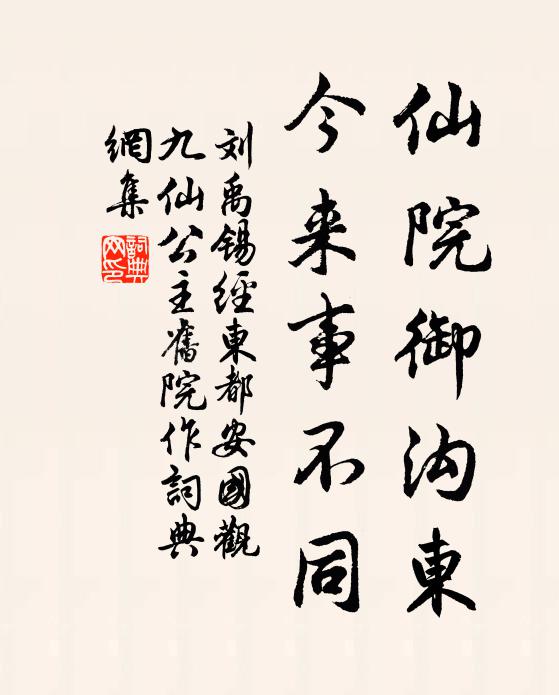 仙院御沟東
今来事不同
刘禹锡經東都安國觀
九仙公主舊院作詞典
網集
詞典網印